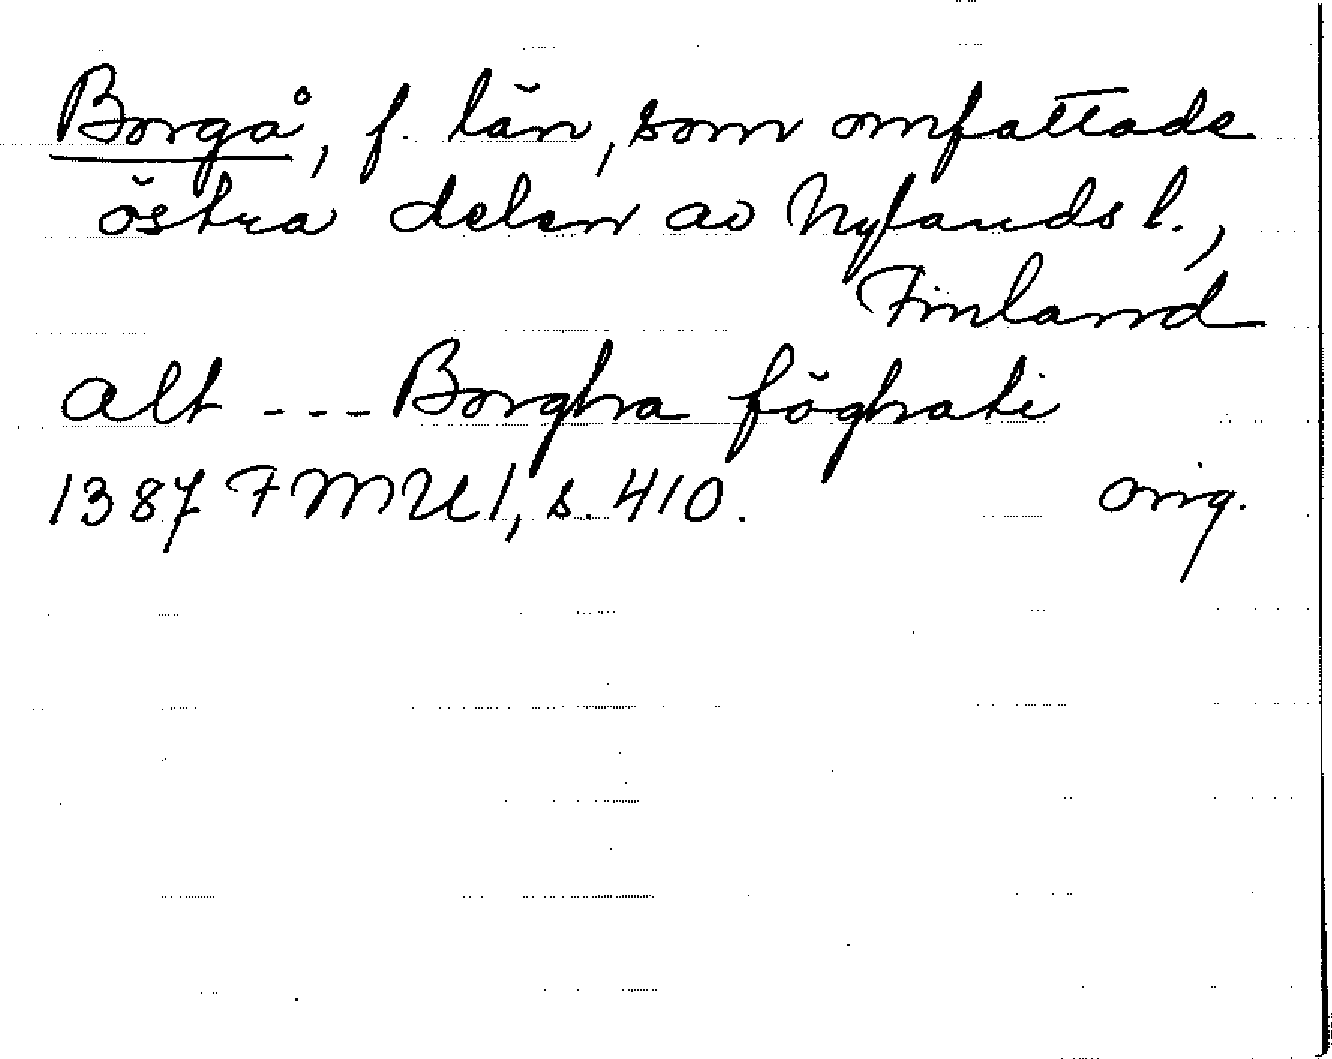 Borgå, f. län, som omfattade
östra delen av Nylands l.,
Finland
alt --- Borgha föghati
1387 FMU 1, s. 410. orig.